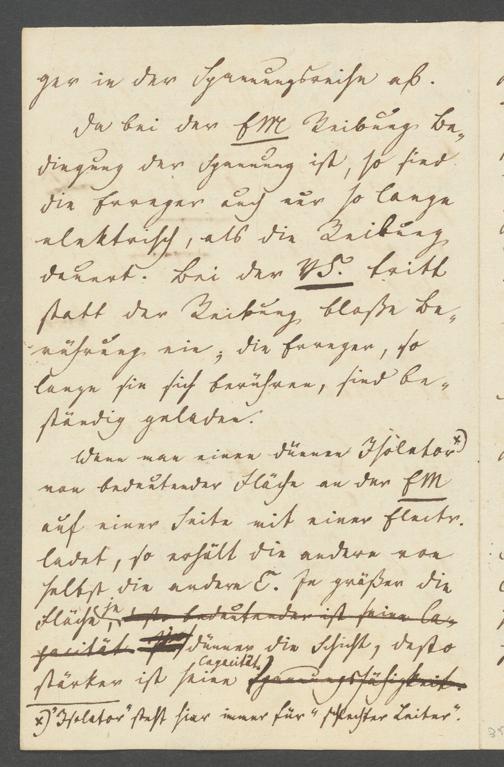 ger in der Spannungsreihe ab.
Da bei der EM Reibung Be„
dingung der Spannung ist, so sind
die Erreger auch nur so lange
elektrisch, als die Reibung
dauert. Bei der VS. tritt
statt der Reibung bloße Be„
rührung ein; die Erreger, so
lange sie sich berühren, sind be„
ständig geladen.
Wenn man einen dünnen Isolator x)
von bedeutender Fläche an der EM
auf einer Seite mit einer Electr.
ladet, so erhält die andere von
selbst die andere E. Je größer die
Fläche, je desto bedeutender ist seine Ca-
pacität. dünner die Schicht, desto
stärker ist seine Capacität. Spannungsfähigkeit.
x) "Isolator" steht hier immer für "schlechter Leiter".
35